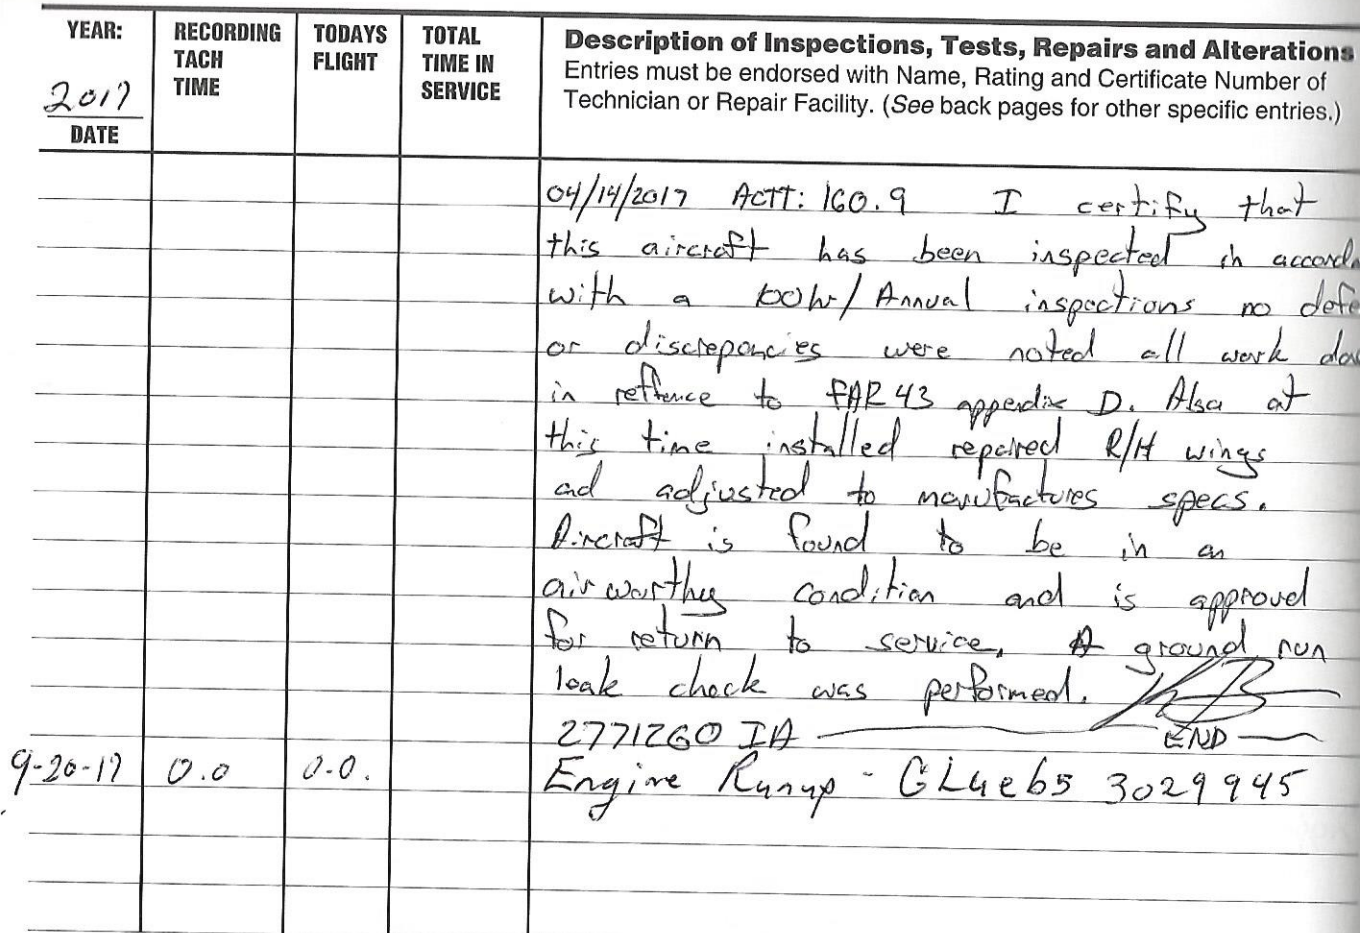 YEAR: 2017 DATE
RECORDING TACH TIME
TODAYS FLIGHT
TOTAL TIME IN SERVICE
Description of Inspections, Tests, Repairs and Alterations
Entries must be endorsed with Name, Rating and Certificate Number of
Technician or Repair Facility. (See back pages for other specific entries.)
04/14/2017 ACTT: 160.9 I certify that
this aircraft has been inspected in accord
with a 100hr/Annual inspections no defe
or discrepancies were noted all work do
in reffence to FAR 43 appendix D. Also at
this time installed repaired R/H wings
and adjusted to manufactures specs.
Aircraft is found to be in an
airworthy condition and is approved
for return to service. A ground run
leak check was performed.
2771260 IA END
9-20-17 0.0 0.0. Engine Runup - 3029945